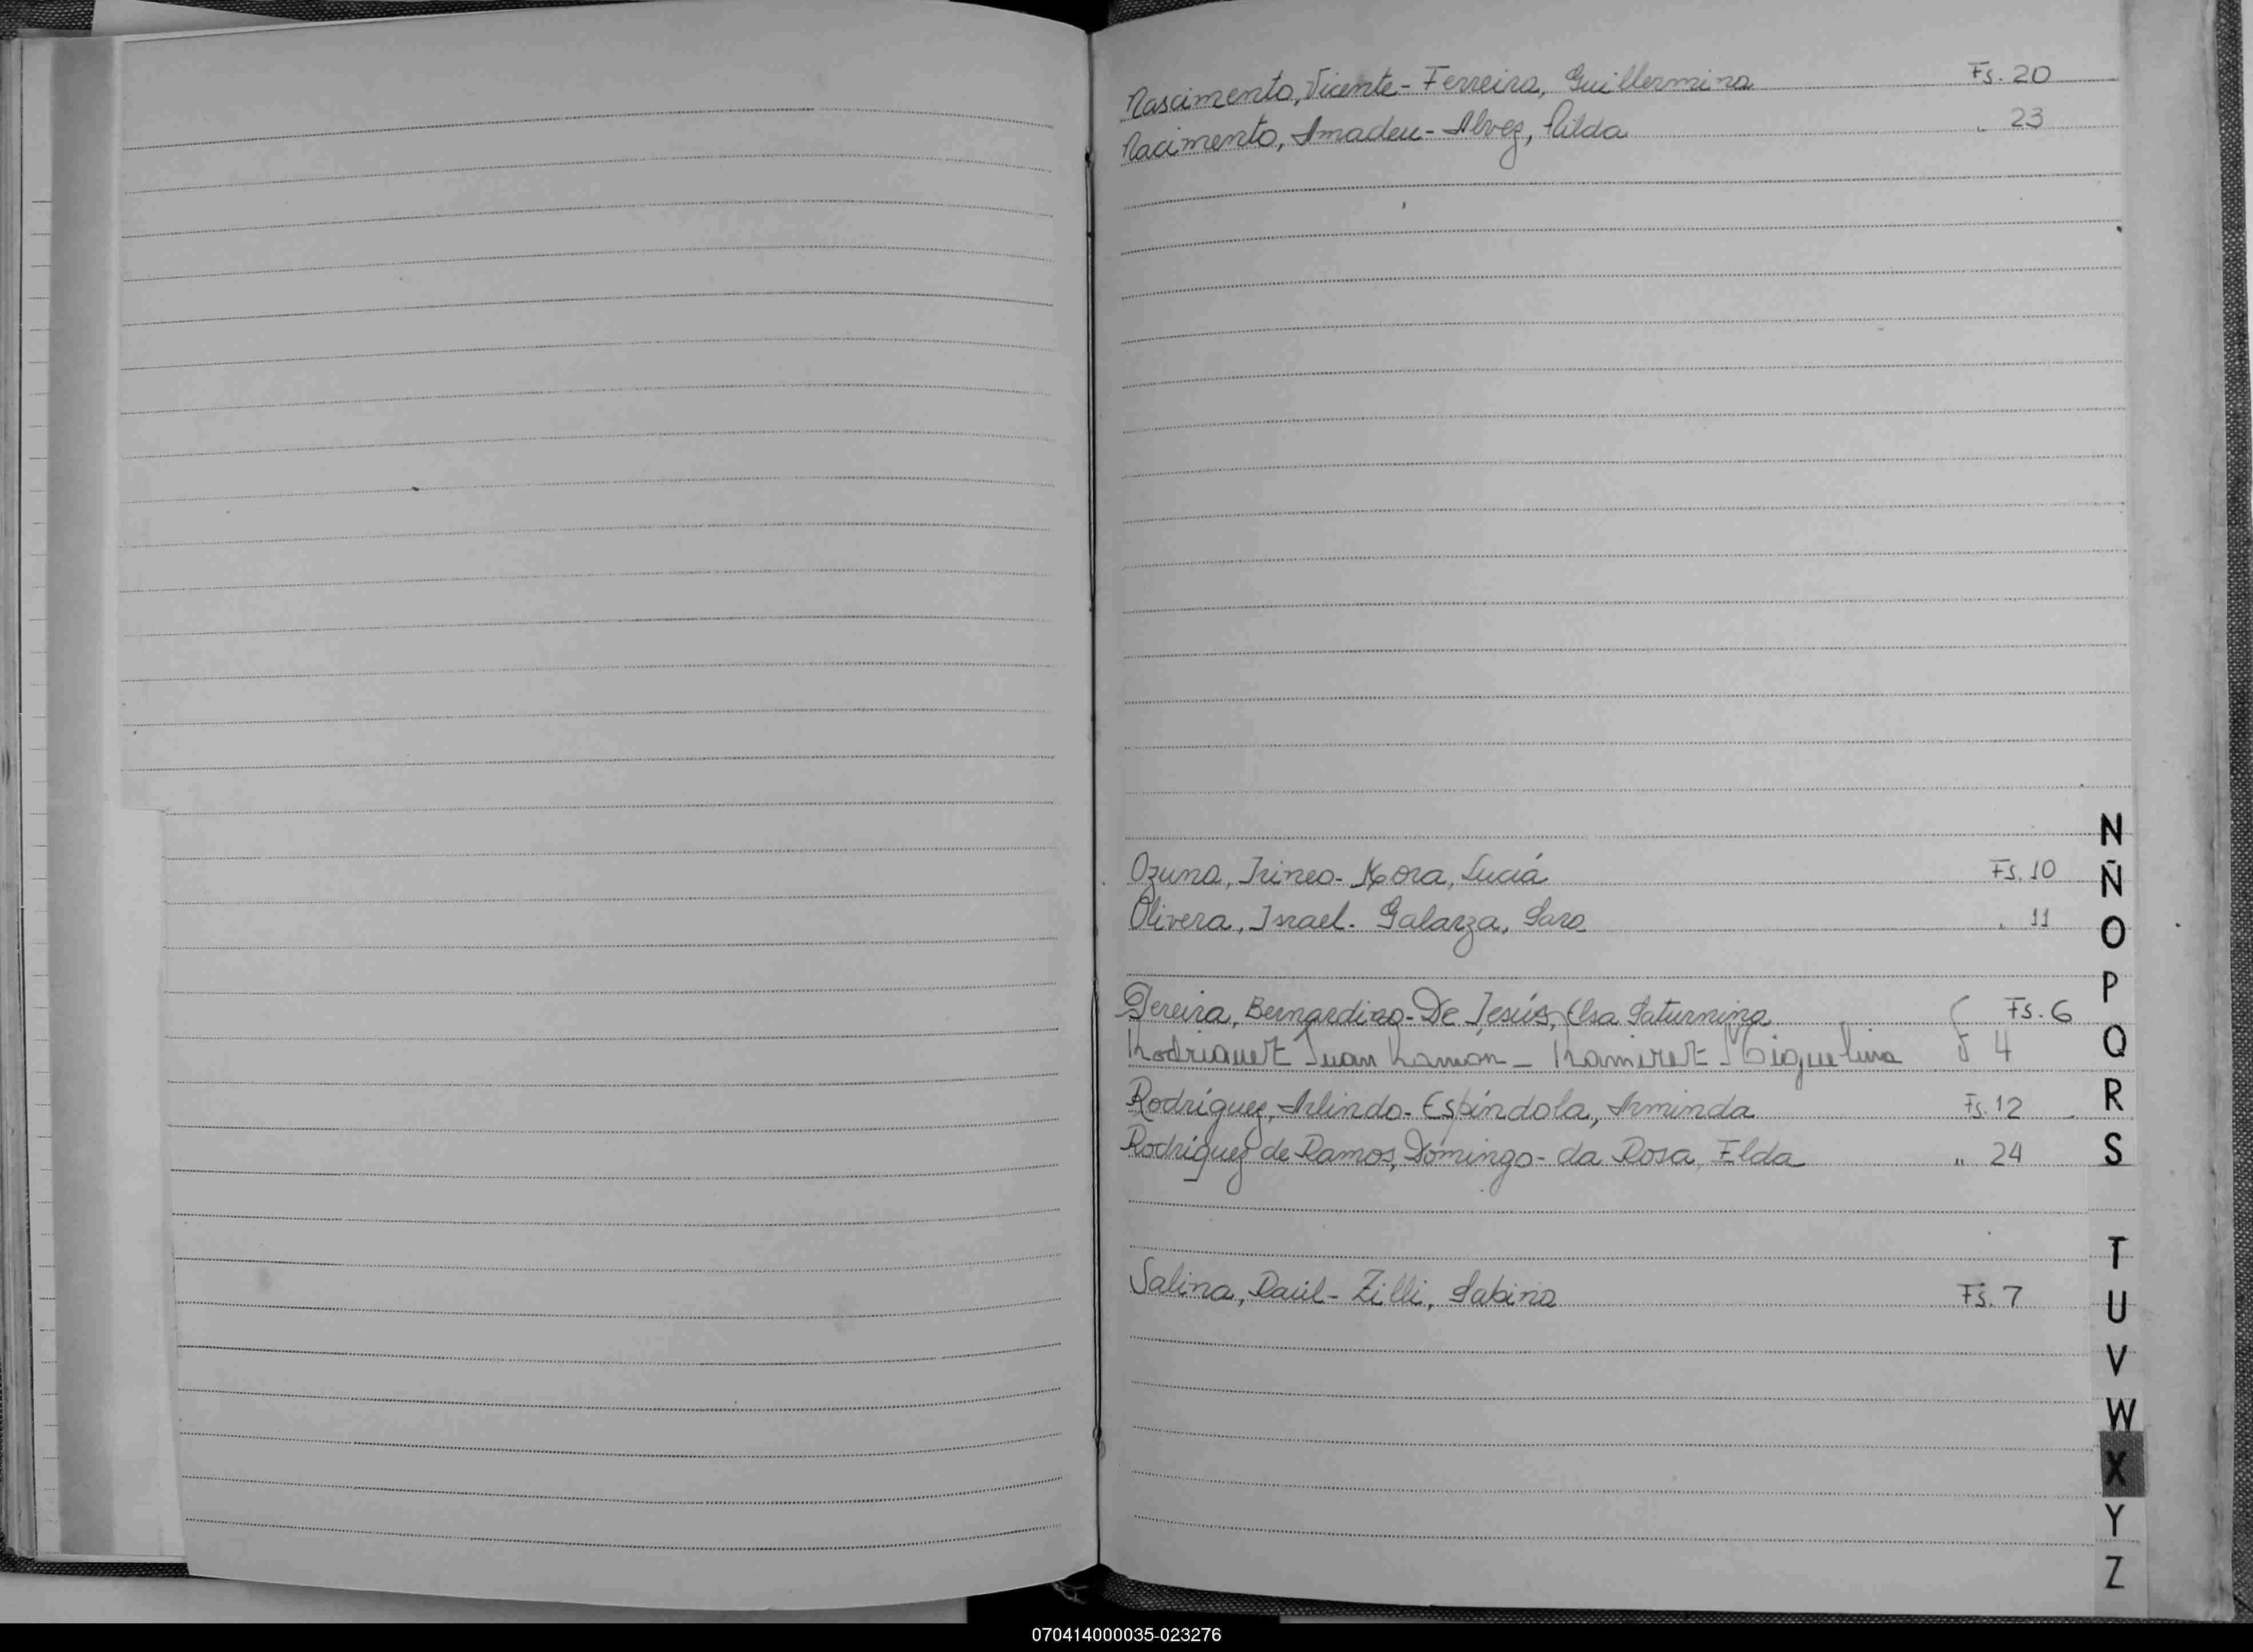 Nascimento, Vicente - Ferreira, Guillermina Fs. 20
Nacimento, Amadeu - Alvez, Nilda " 23
Ozuna, Irineo - Mora, Luciá Fs. 10
Olivera, Israel - Galarza, Sara " 11
Pereira, Bernardino - De Jesús, Elsa Saturnina Fs. 6
Rodriguez Juan Ramón - Ramirez Miguelina F 4
Rodríguez, Arlindo - Espíndola, Arminda Fs. 12
Rodríguez de Ramos, Domingo - da Rosa, Elda " 24
Salina, Raúl - Zilli, Sabina Fs. 7
N
Ñ
O
P
Q
R
S
T
U
V
W
X
Y
Z
070414000035-023276